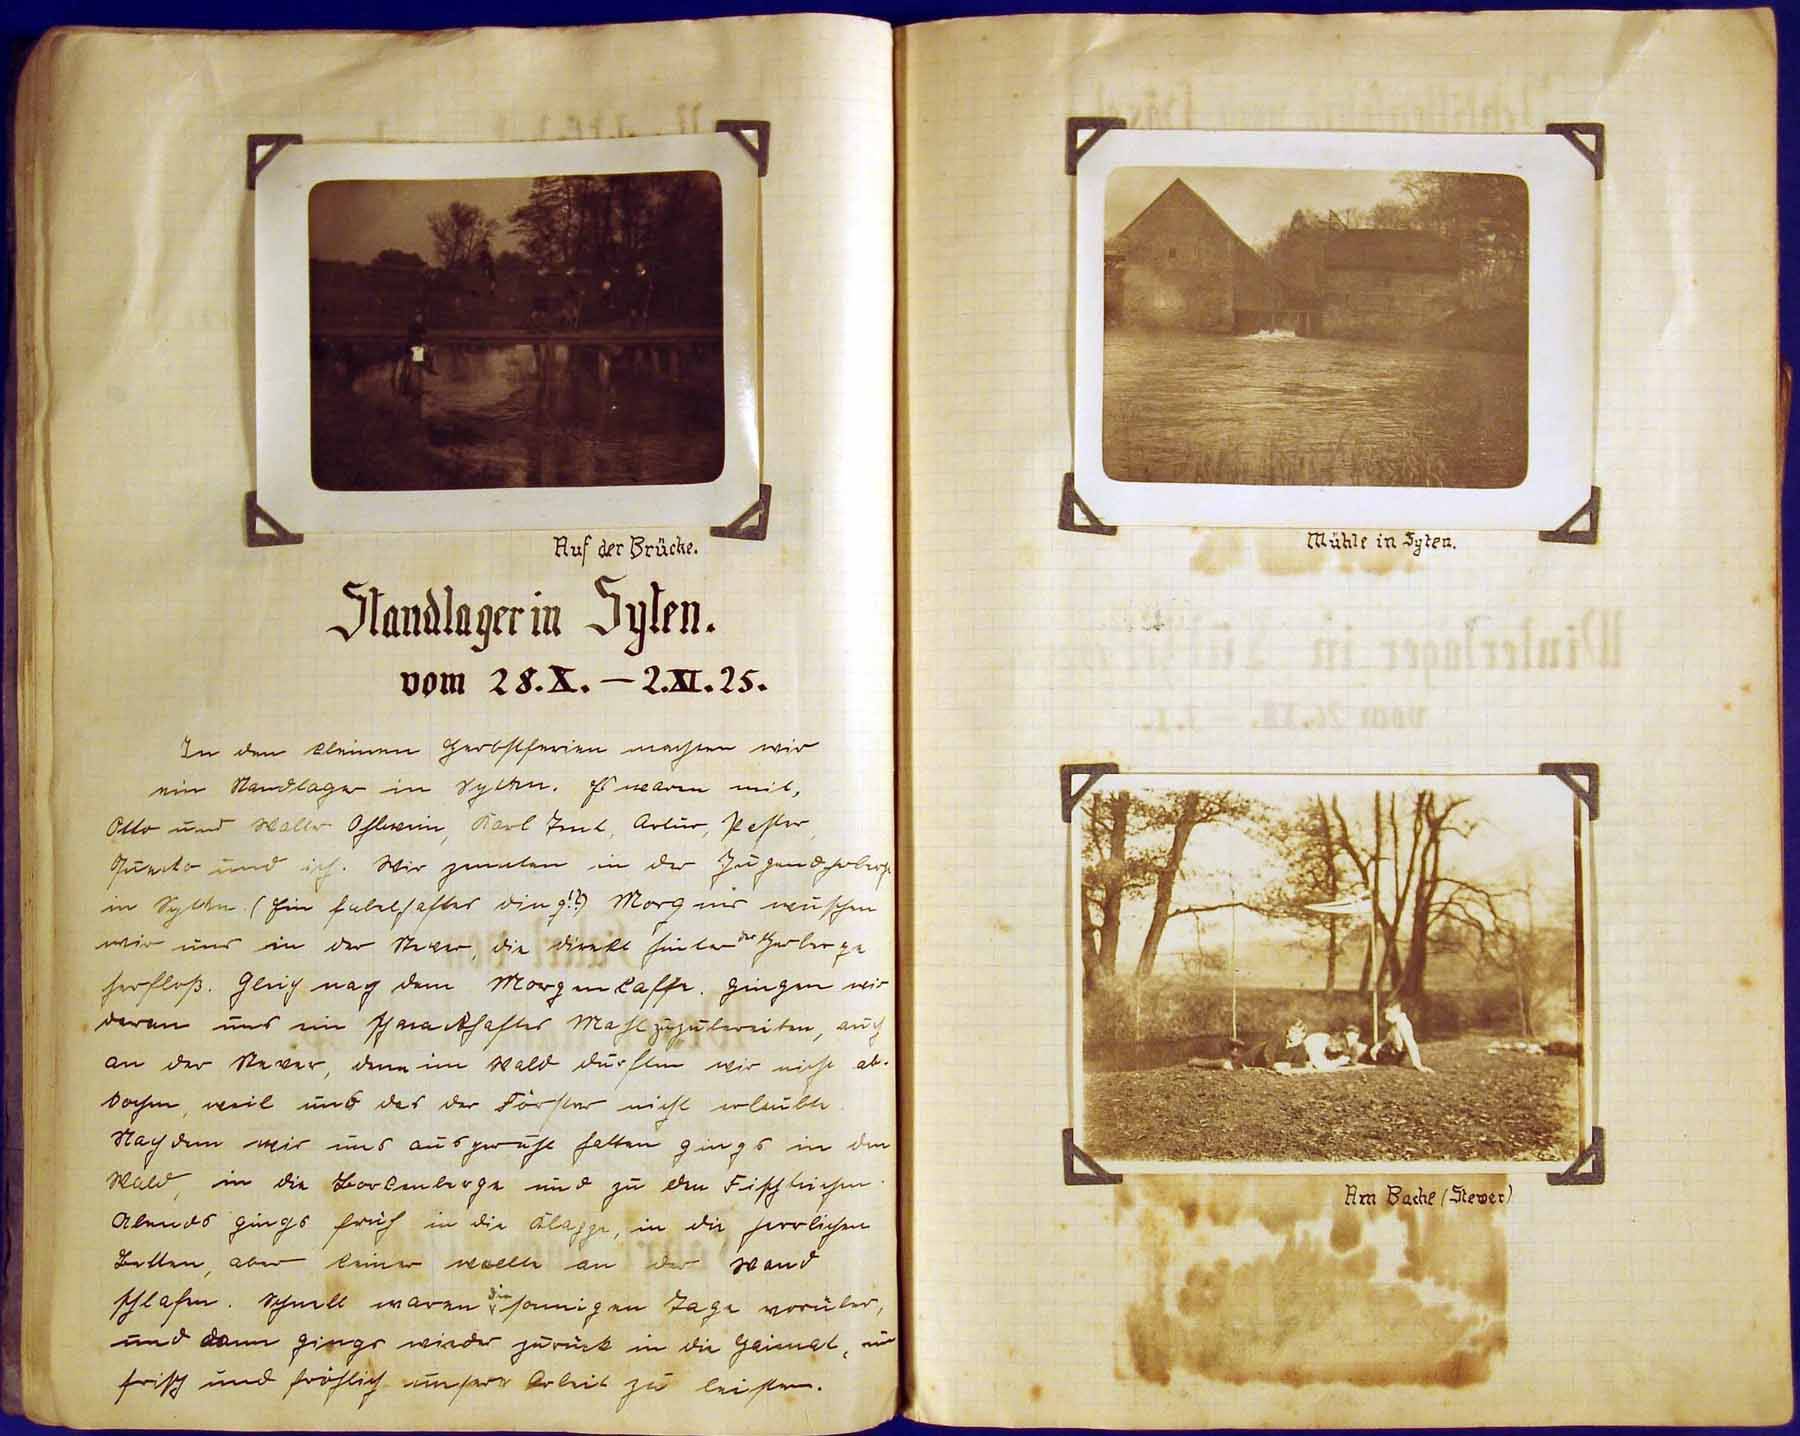 Auf der Brücke.
Standlager in Syten.
vom 28.X. – 2.XI.25.
In den kleinen Herbstferien machten wir
ein Standlager in Sythen. Es waren mit,
Otto und Walter Ohlwein, Karl Arthur,
und ich. Wir pennten in der Jugendherberge
in Sythen (Ein fabelhaftes Ding!?) Morgens wuschen
wir uns in der Stever, die direkt hinter der Herberge
herfloß. Gleich nach dem Morgenkaffe. gingen wir
daran uns ein schmackhaftes Mahl zuzubereiten, auch
an der Stever, denn im Wald durften wir nicht ab-
kochen, weil uns das der Förster nicht erlaubte.
Nachdem wir uns ausgeruht hatten gings in den
Wald, in die Borkenberge und zu den Fischteichen.
Abends gings früh in die Klappe, in die herrlichen
Betten, aber keiner wollte an der Wand
schlafen. Schnell waren die sonnigen Tage vorüber,
und dann gings wieder zurück in die Heimat, um
frisch und fröhlich unsere Arbeit zu leisten.
Mühle in Syten.
Am Bache (Stever)